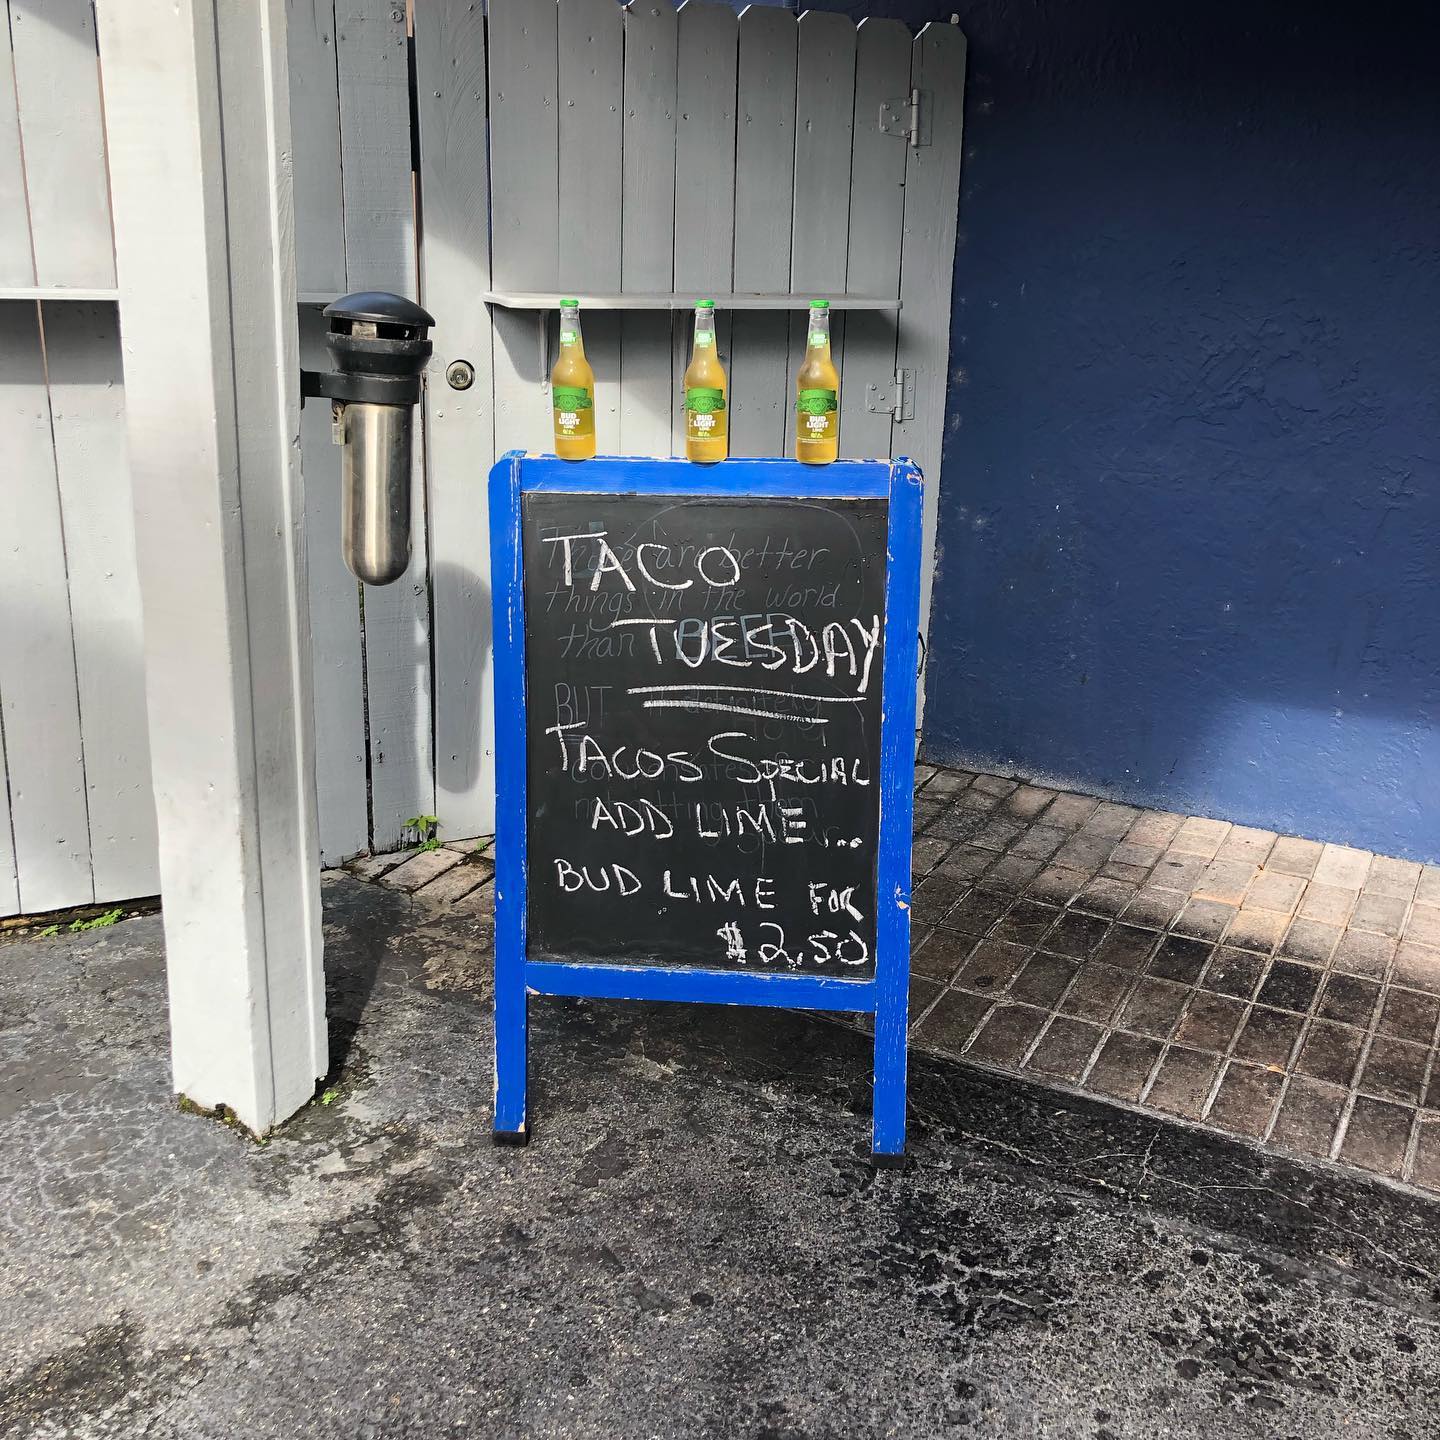 BUD LIGHT
BUD LIGHT
BUD LIGHT
BUD
LIGHT
LIME
BUD
LIGHT
LIME
BUD
LIGHT
LIME
TACO
TUESDAY
TACOS SPECIAL
ADD LIME...
BUD LIME FOR
$2.50
are better
things in the world
than BEER
BUT definitely